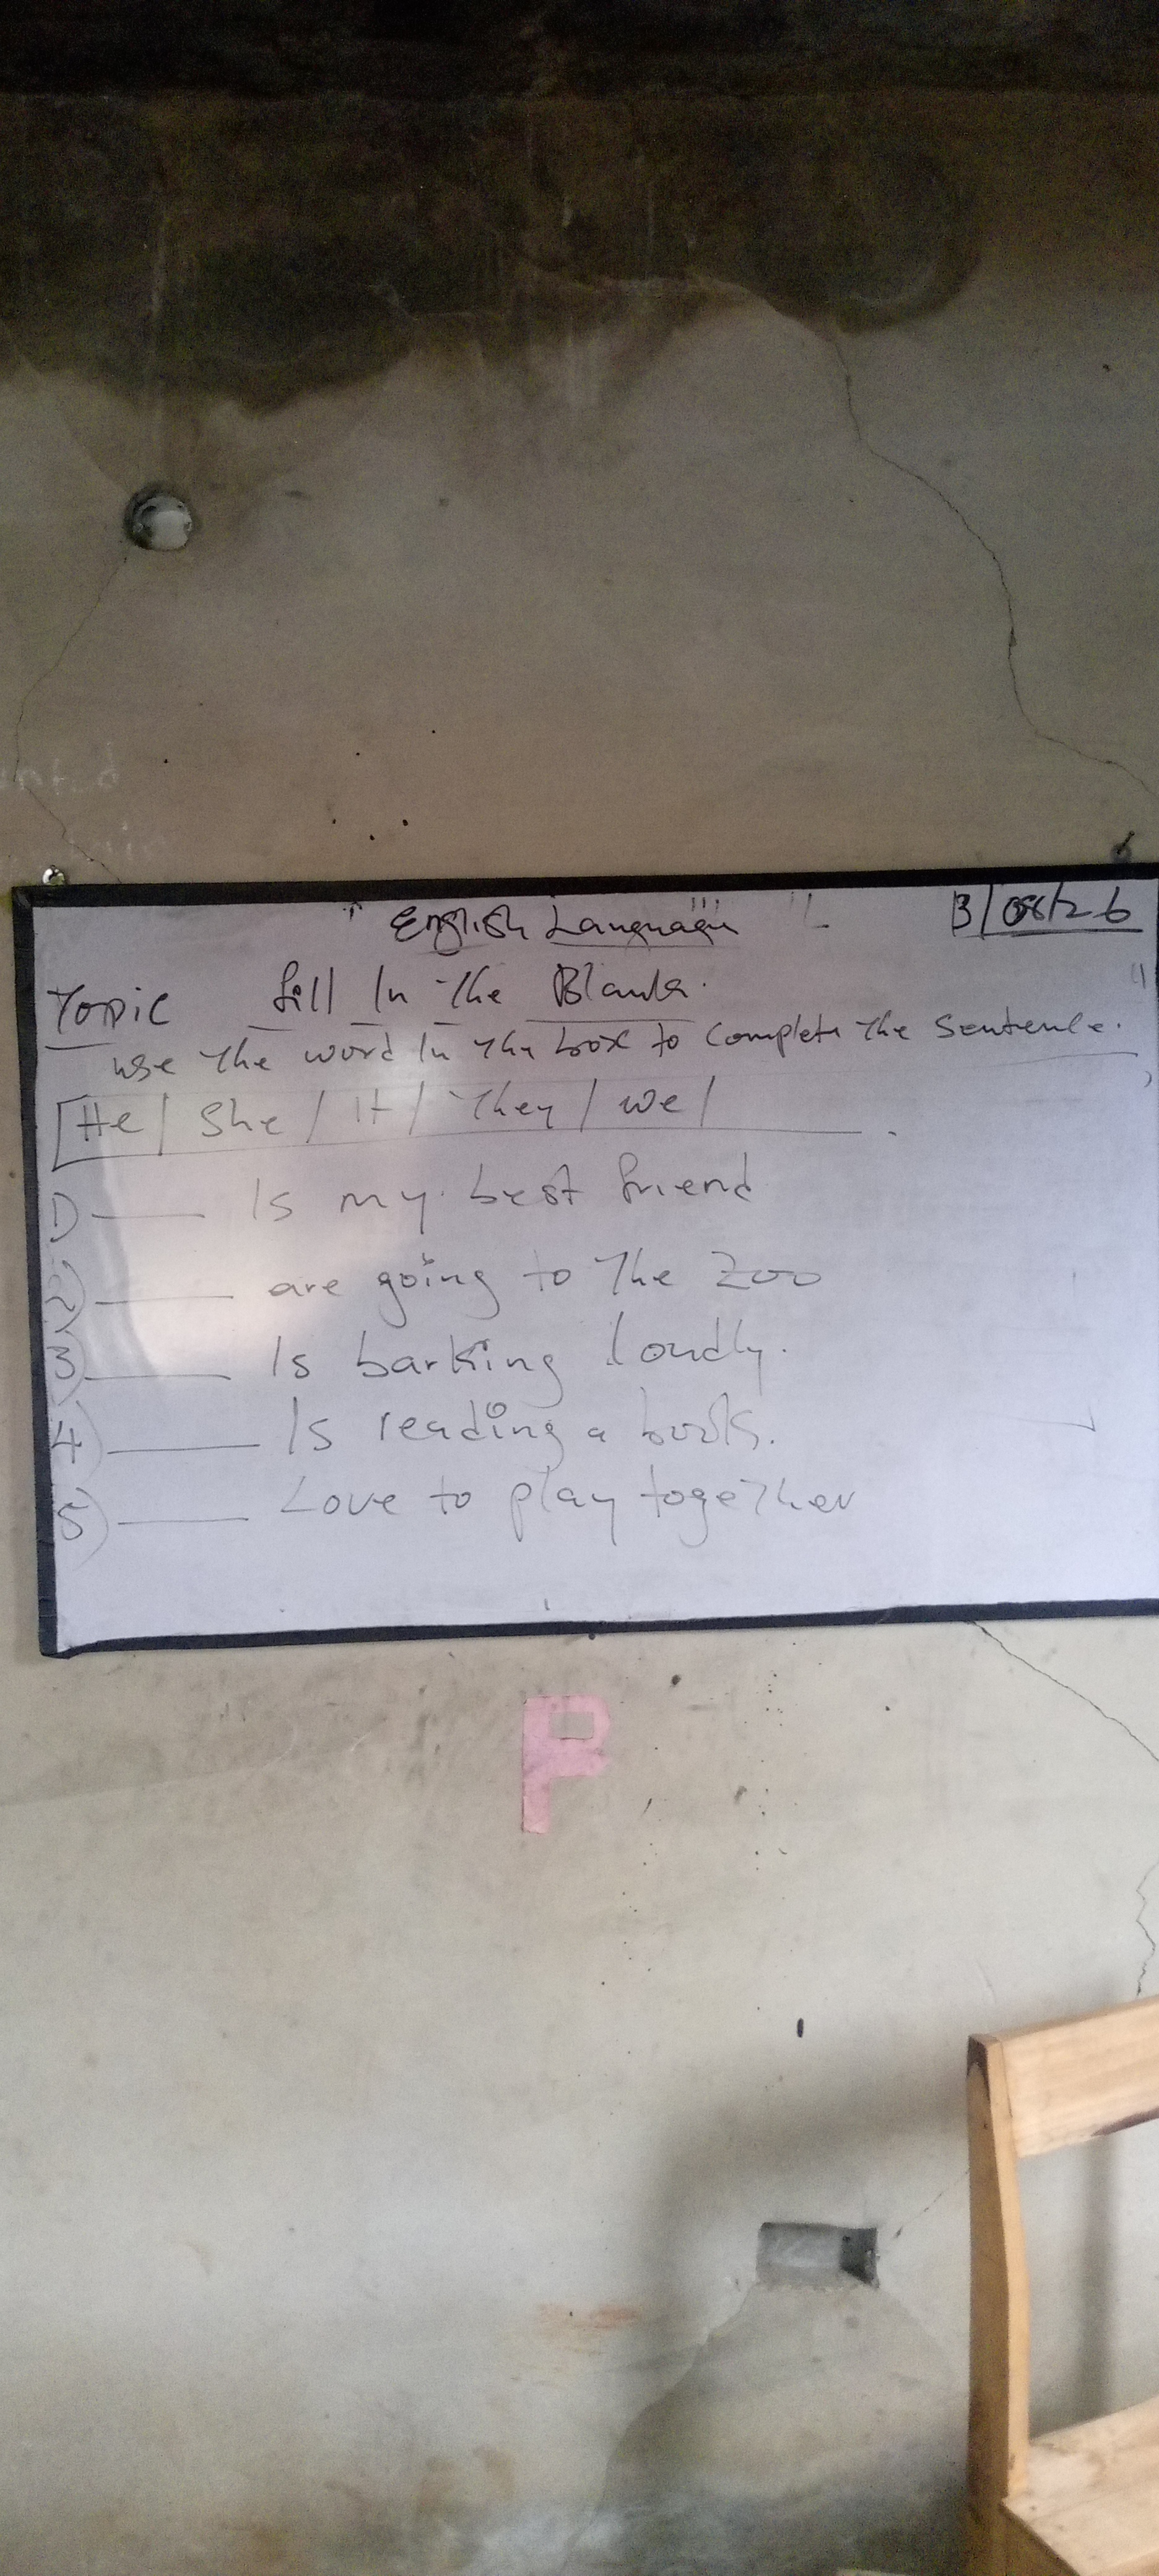 English Language
3/08/26
Topic fill In the Blanks.
use the word In the box to complete the sentence.
He / She / It / They / we /
1) ____ Is my best friend
2) ____ are going to the zoo
3) ____ Is barking loudly.
4) ____ Is reading a book.
5) ____ Love to play together
P